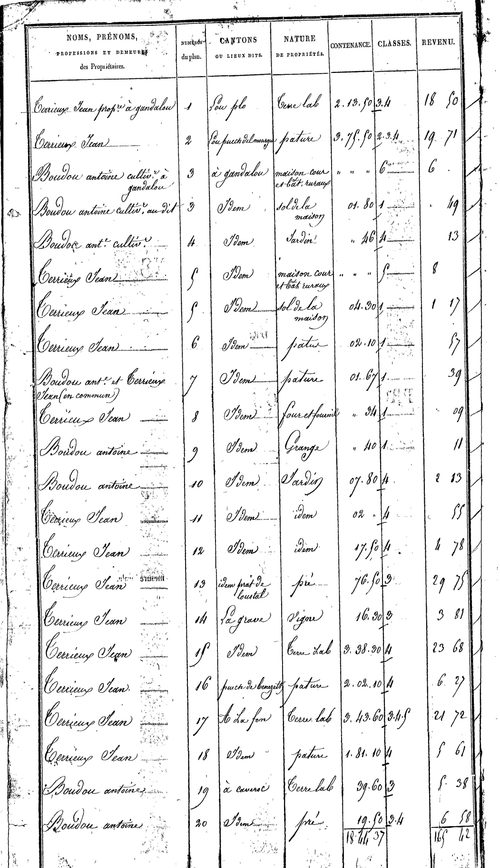 NOMS, PRÉNOMS, PROFESSIONS ET DEMEURES des Propriétaires. NUMÉROS du plan. CANTONS OU LIEUX DITS. NATURE DE PROPRIÉTÉS. CONTENANCE. CLASSES. REVENU.
Terrieux Jean prop.re à gandalou 1 Lou plo Terre lab 2.13.50 3.4 18 50
Terrieux Jean 2 pature 3.75.50 2.3.4 19 71
Boudou antoine cultiv.r à gandalou 3 à gandalou maison cour et bât. ruraux " " " 6 6 "
Boudou antoine cultiv.r au dit 3 Idem sol de la maison 01.80 1 " 49
Boudou ant.e cultiv.r 4 Idem Jardin " 46 4 13
Terrieux Jean 5 Idem maison cour et bât ruraux " " " 5 8
Terrieux Jean 5 Idem sol de la maison 04.30 1 1 17
Terrieux Jean 6 Idem patus 02.10 1 57
Boudou ant.e et Terrieux Jean (en commun) 7 Idem pature 01.67 1 39
Terrieux Jean 8 Idem four et fournil " 34 1 09
Boudou antoine 9 Idem Grange " 40 1 11
Boudou antoine 10 Idem Jardin 07.80 4 2 13
Terrieux Jean 11 Idem idem 02. " 4 55
Terrieux Jean 12 Idem idem 17.50 4 4 78
Terrieux Jean 13 idem prat de loustal pré 76.50 3 29 75
Terrieux Jean 14 La grave vigne 16.30 3 3 81
Terrieux Jean 15 Idem Terre Lab 3.38.30 4 23 68
Terrieux Jean 16 pature 2.02.10 4 6 27
Terrieux Jean 17 A La fon Terre lab 3.43.60 3.4.5 21 72
Terrieux Jean 18 Idem pature 1.81.10 4 5 61
Boudou antoine 19 à caveroc Terre lab 39.60 3 5 38
Boudou antoine 20 Idem pré 19.50 3.4 6 58
18.44.37 165 42